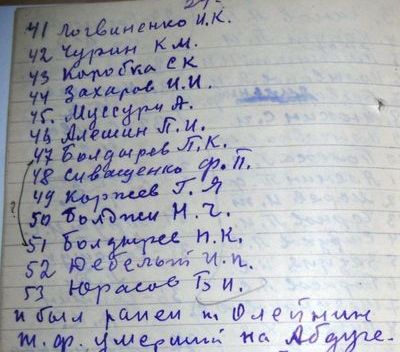 41 Логвиненко И.К.
42 Чурин К М.
43 Коробка С К
44 Захаров И.И.
45. Муссури А.
46 Алешин П.И.
47 Болдырев П.К.
48 Сиващенко Ф.П.
49 Коржев Г.Я
50 Болджи Н.Г.
51 Болдырев П.К.
52 Дебелый И.П.
53 Юрасов Б И.
и был ранен т. Олейник
т. ф. умерший на
?